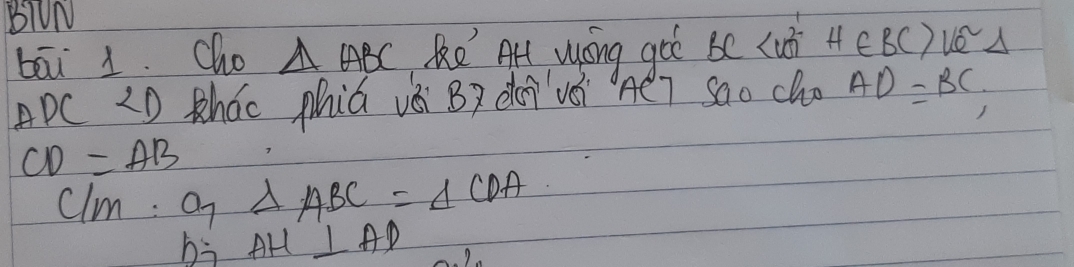 BTVN
bài 1. Cho Δ ABC kẻ AH vuông góc BC <với H ∈ BC) vẽ Δ
ADC <D khác phía với B> đối với AC> sao cho AD = BC,
CD = AB
C/m : a, Δ ABC = Δ CDA
b; AH ⊥ AD